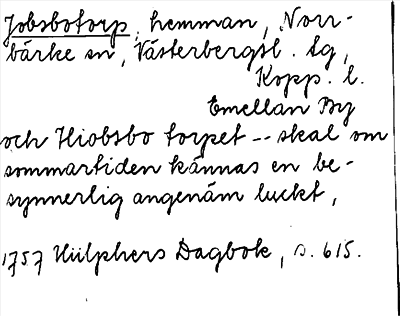 Jobsbotorp, hemman, Norr-
bärke sn, Västerbergsl. lg,
Kopp. l.
Emellan By
och Hiobsbo torpet -- skal om
sommartiden kännas en be-
synnerlig angenäm luckt,
1757 Hülphers Dagbok, s. 615.